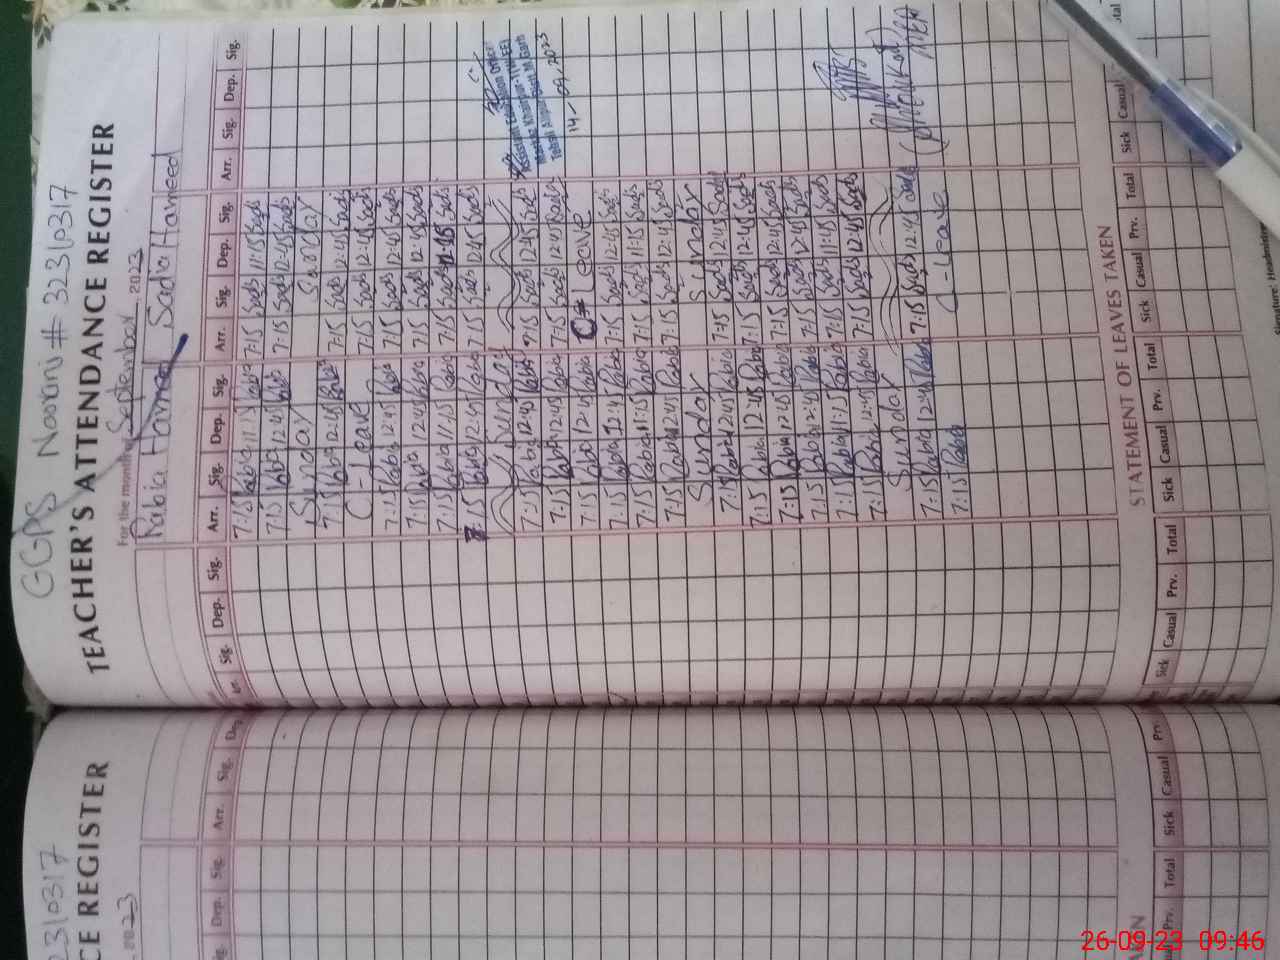 GGPS Noorani # 32310317
TEACHER'S ATTENDANCE REGISTER
For the month of September 2023
Rabia Hameed Sadia Hameed
Arr. Sig. Dep. Sig. Arr. Sig. Dep. Sig. Arr. Sig. Dep. Sig.
7:15 Rabia 11:15 Rabia 7:15 Sads 11:15 Sads
7:15 Rabia 12:45 Rabia 7:15 Sads 12:45 Sads
Sunday Sunday
7:15 Rabia 12:45 Rabia 7:15 Sads 12:45 Sads
C-Leave 7:15 Sads 12:45 Sads
7:15 Rabia 12:45 Rabia 7:15 Sads 12:45 Sads
7:15 Rabia 12:45 Rabia 7:15 Sads 12:45 Sads
7:15 Rabia 11:15 Rabia 7:15 Sads 11:15 Sads
7:15 Rabia 12:45 Rabia 7:15 Sads 12:45 Sads
Sunday
7:15 Rabia 12:45 Rabia 7:15 Sads 12:45 Sads
7:15 Rabia 12:45 Rabia 7:15 Sads 12:45 Sads
7:15 Rabia 12:45 Rabia Leave
7:15 Rabia 12:45 Rabia 7:15 Sads 12:45 Sads
7:15 Rabia 11:15 Rabia 7:15 Sads 11:15 Sads
7:15 Rabia 12:45 Rabia 7:15 Sads 12:45 Sads
Sunday Sunday
7:15 Rabia 12:45 Rabia 7:15 Sads 12:45 Sads
7:15 Rabia 12:45 Rabia 7:15 Sads 12:45 Sads
7:15 Rabia 12:45 Rabia 7:15 Sads 12:45 Sads
7:15 Rabia 12:45 Rabia 7:15 Sads 12:45 Sads
7:15 Rabia 11:15 Rabia 7:15 Sads 11:45 Sads
7:15 Rabia 12:45 Rabia 7:15 Sads 12:45 Sads
Sunday
7:15 Rabia 12:45 Rabia 7:15 Sads 12:45 Sads
7:15 Rabia C-Leave
Assistant Education Officer
Markaz Khanpur
14-09-2023
STATEMENT OF LEAVES TAKEN
Sick Casual Prv. Total Sick Casual Prv. Total Sick Casual Prv. Total Sick Casual
2310317
CE REGISTER
2023
Sig. Dep. Sig. Arr. Sig. Dep.
AKEN
Prv. Total Sick Casual Prv.
26-09-23 09:46